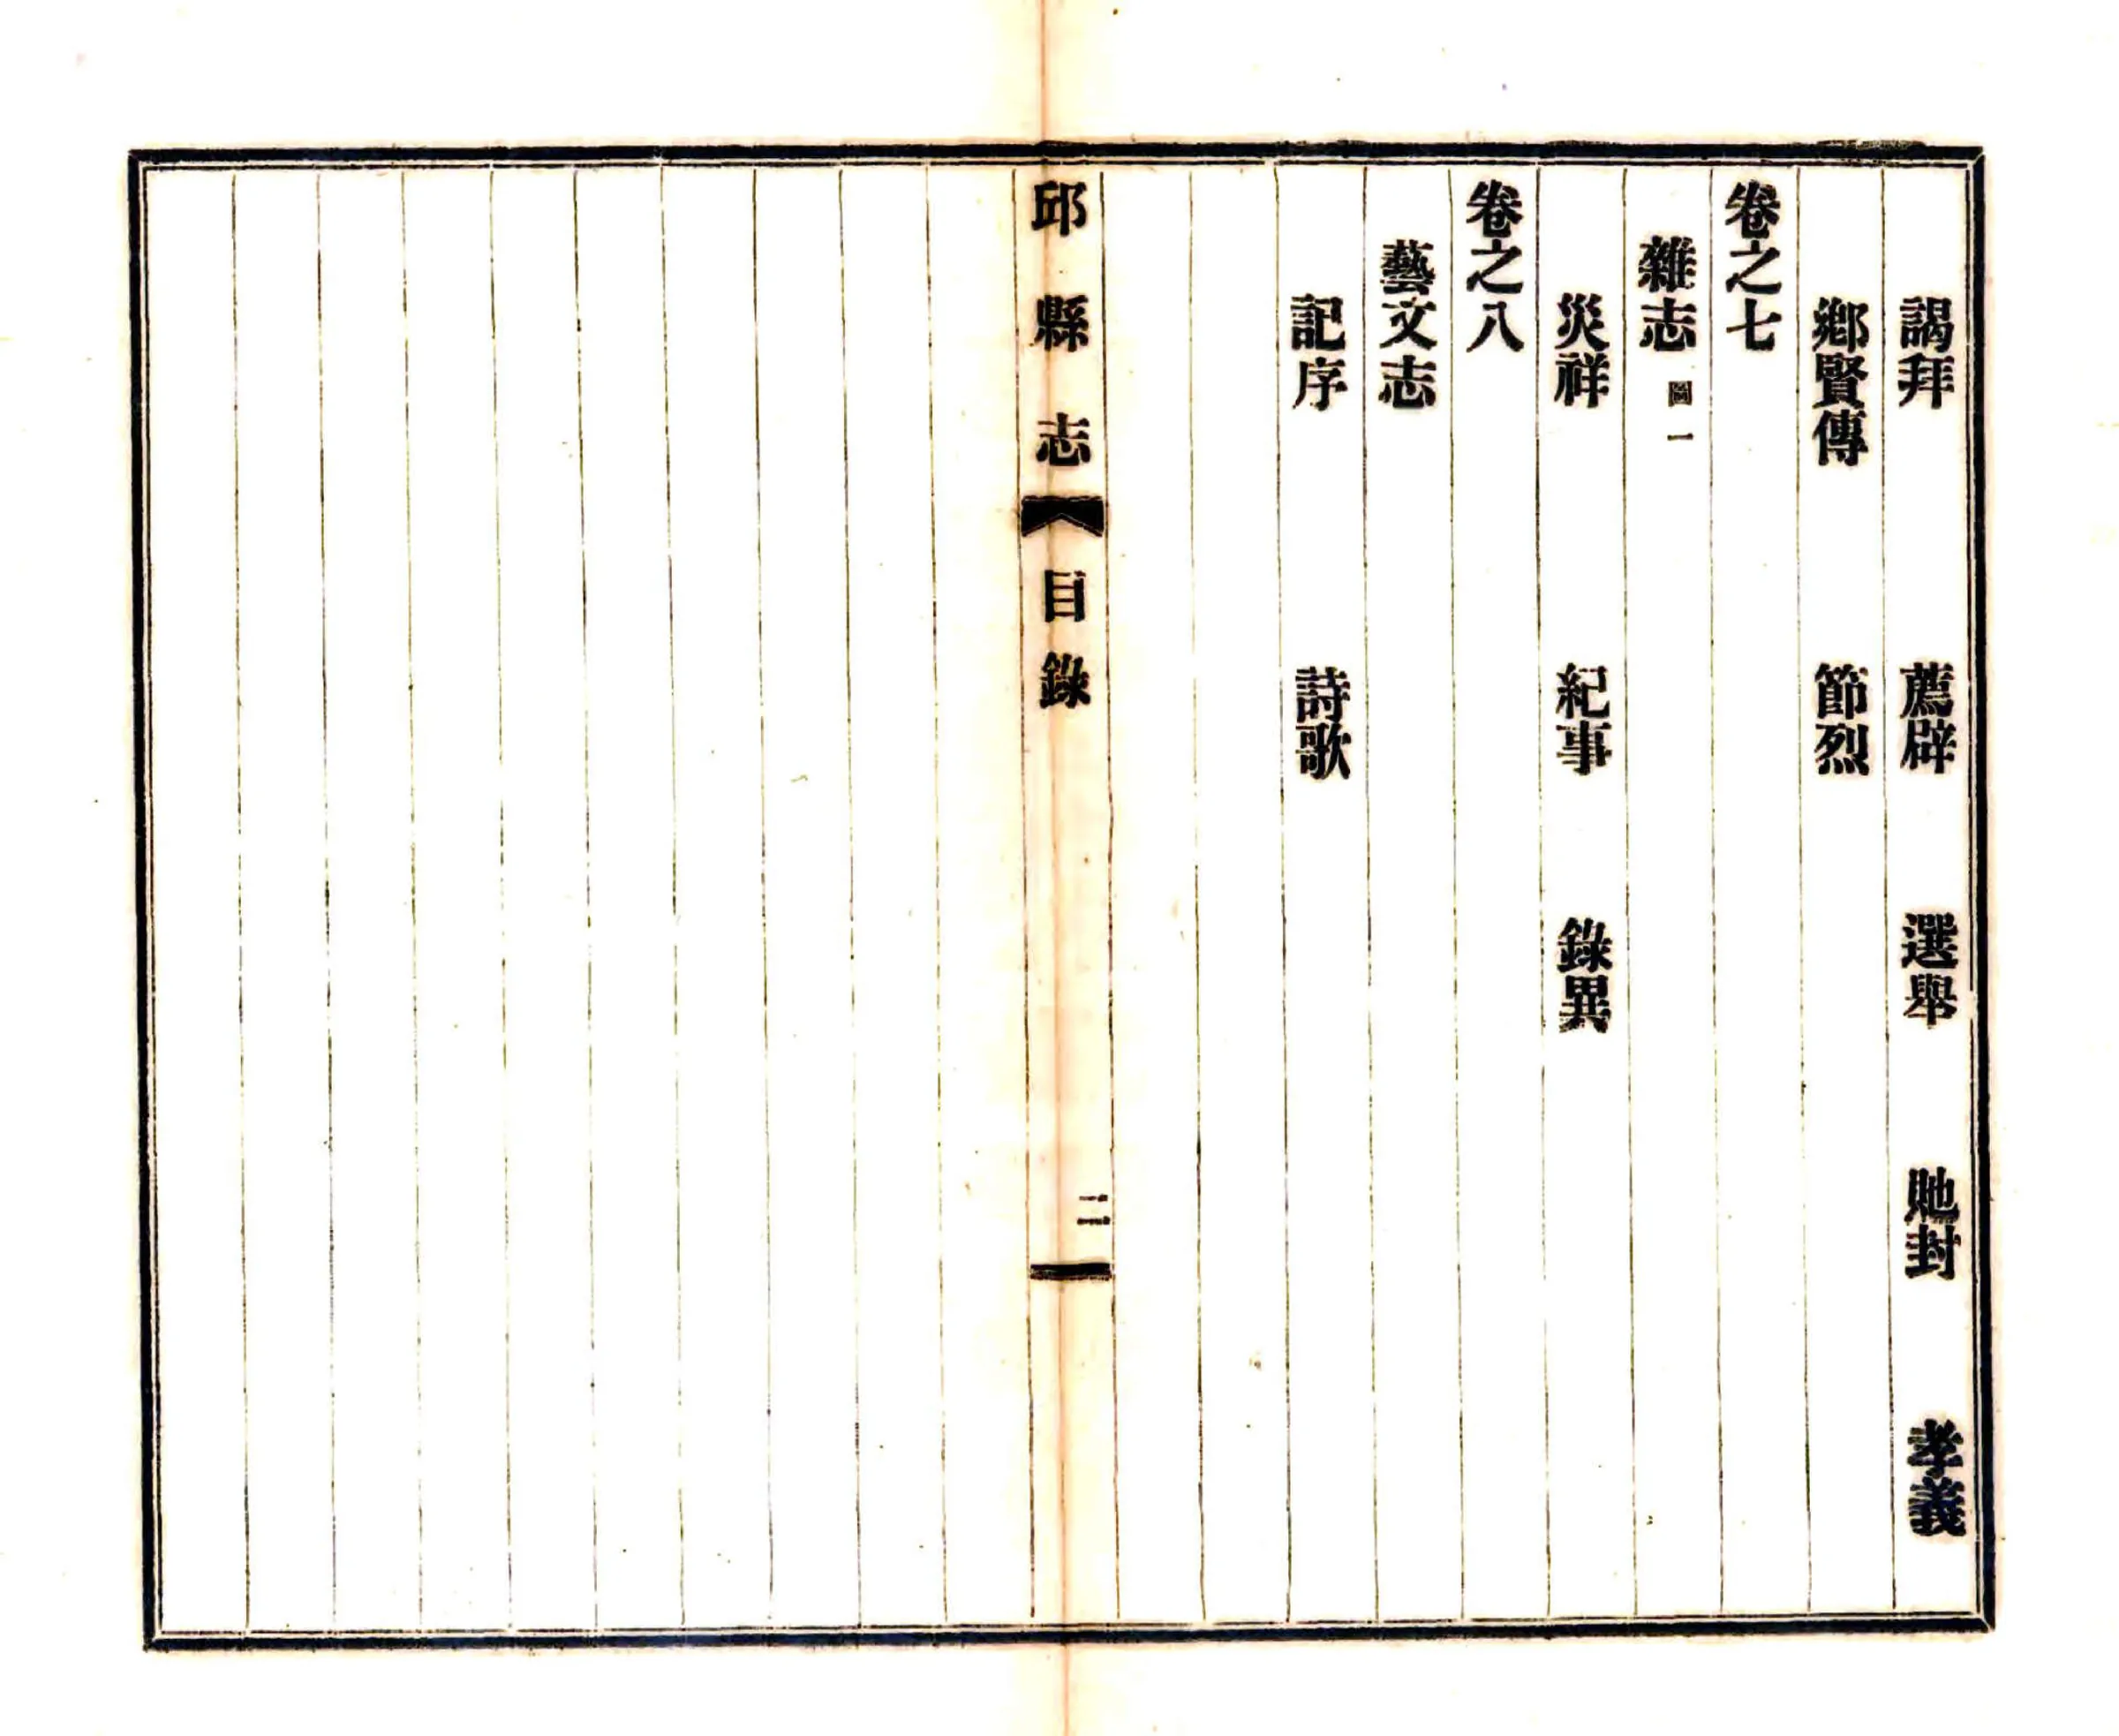 謁拜　薦辟　選舉　貤封　孝義
鄉賢傳　節烈
卷之七
雜志 圖一
災祥　紀事　錄異
卷之八
藝文志
記序　詩歌
邱縣志　目錄　二